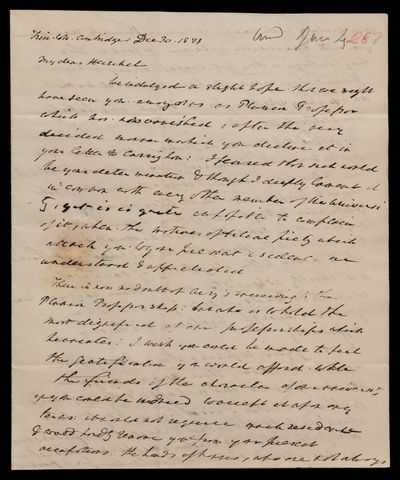 Trin. Coll. Cambridge Dec 30. 1827
287
My dear Herschel
We indulged a slight hope that we might
have seen you amongst us as Plumian Professor
which has now vanished, after the very
decided manner in which you decline it in
your letter to Carrighan: I feared this such would
be your determination & though I deeply lament it
in common with every other member of the Universi
ty, yet it is quite impossible to complain
of it, when the motives of filial piety which
attach you to your present residence are
understood & appreciated
There is now no doubt of Airy's succeeding to the
Plumian Professorship: but who is to hold the
most dignified of our Professorships which
he vacates: I wish you could be made to feel
the gratification you would afford to all
the friends of the character of our university
if you could be induced to accept it if for a
term: it would not require much residence
& would hardly remove you from your present
occupations: the heads of houses, who are not always